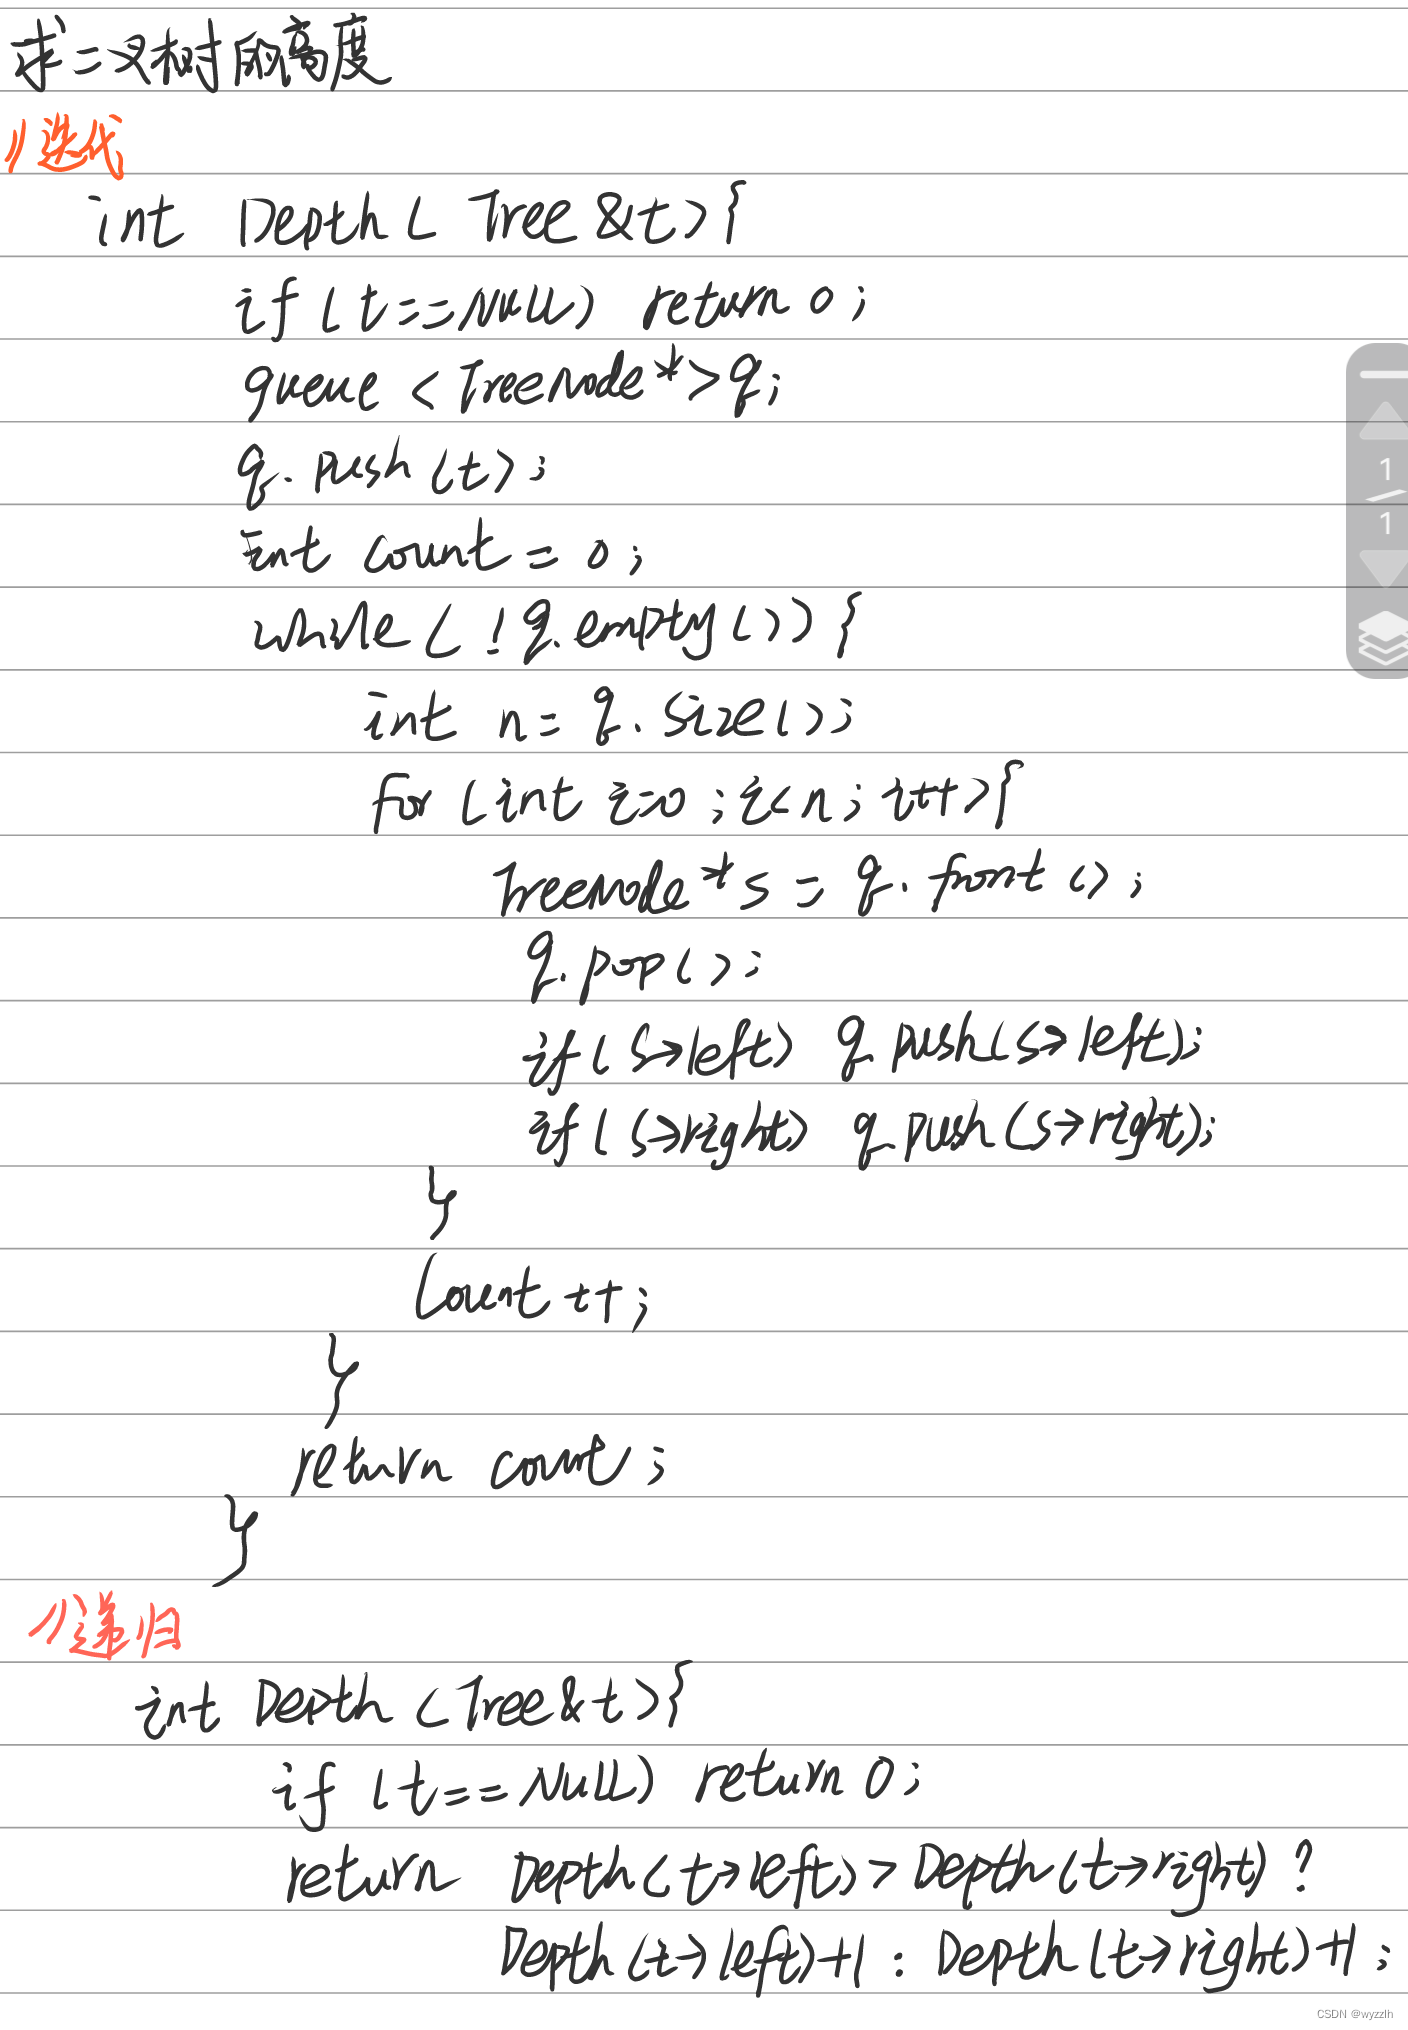 求二叉树的高度
//迭代
int Depth( Tree &t){
if(t==Null) return 0;
queue <TreeNode*>q;
q.push(t);
int count = 0;
while( !q.empty()){
int n= q.size();
for (int i=0;i<n;i++){
TreeNode*s = q.front();
q.pop();
if(s→left) q.push(s→left);
if(s→right) q.push(s→right);
}
Count++;
}
return count;
}
//递归
int Depth (Tree&t){
if (t==Null) return 0;
return Depth(t→left)>Depth(t→right)?
Depth(t→left)+1:Depth(t→right)+1;
1
1
CSDN @wyzzlh